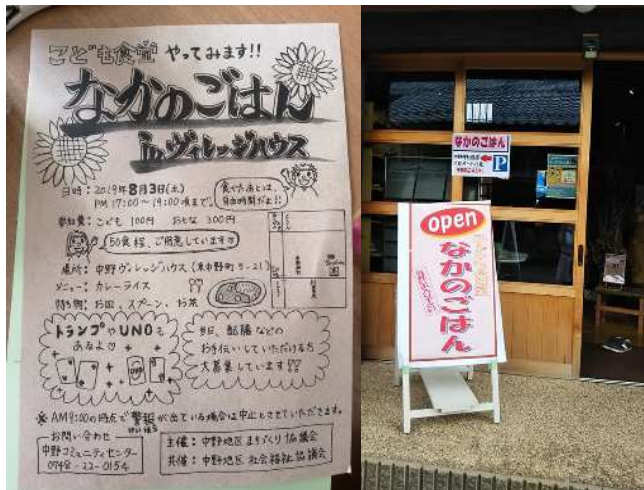 こども食堂 やってみます!!
なかのごはん
inヴィレッジハウス
日時:2019年8月3日(土)
PM 17:00~19:00頃まで。
食べたあとは、
自由時間だよ!!
参加費:こども 100円 おとな 300円
50食程、ご用意しています
場所:中野ヴィレッジハウス(東中野町5-21)
メニュー:カレーライス
持ち物:お皿、スプーン、お茶
トランプやUNOも
あるよ♡
UNO
当日、配膳などの
お手伝いしていただける方
大募集しています!!
※AM9:00の時点で警報が出ている場合は中止とさせていただきます。
お問い合わせ
中野コミュニティセンター
0748-22-0154
主催:中野地区まちづくり協議会
共催:中野地区 社会福祉協議会
なかのごはん
P
open
なかのごはん